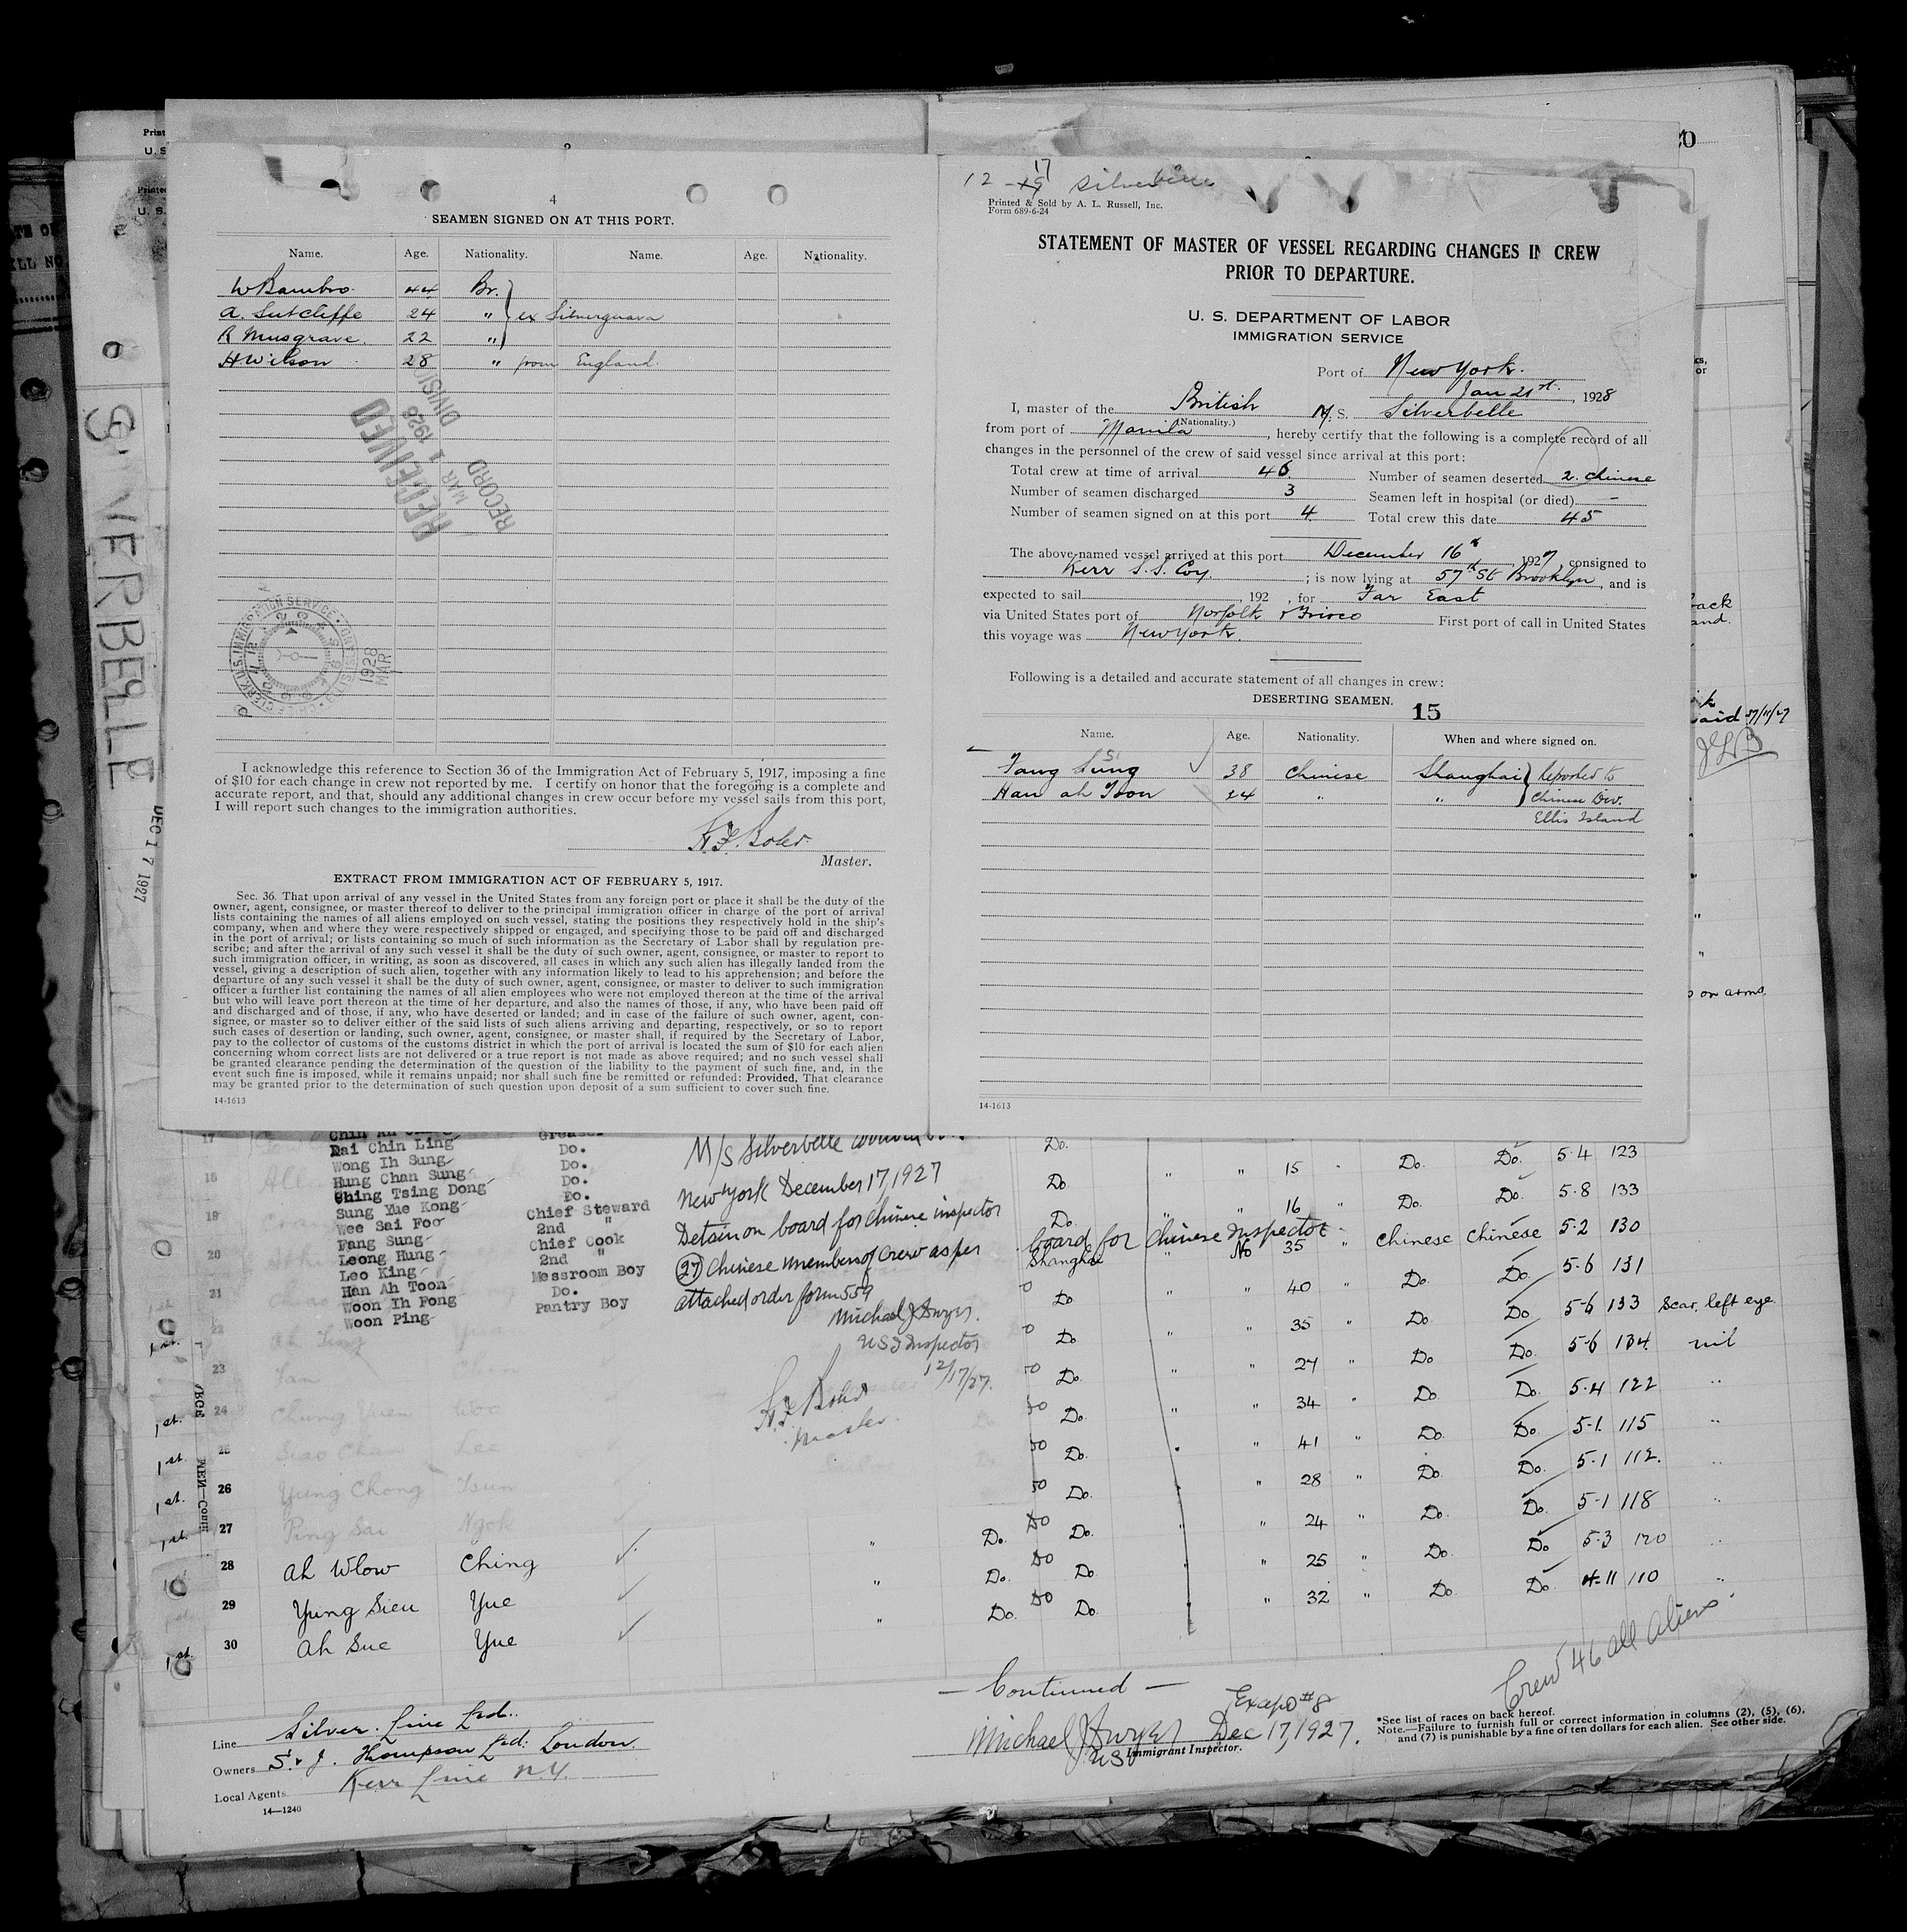 4
SEAMEN SIGNED ON AT THIS PORT.
Name. Age. Nationality. Name. Age. Nationality.
W Bambro. 44 Br.
A. Sutcliffe 24 " ex Silverguava
R Musgrave. 22 "
H Wilson 28 " from England.
RECEIVED
MAR 1 1928
RECORD DIVISION
1928
MAR
I acknowledge this reference to Section 36 of the Immigration Act of February 5, 1917, imposing a fine
of $10 for each change in crew not reported by me. I certify on honor that the foregoing is a complete and
accurate report, and that, should any additional changes in crew occur before my vessel sails from this port,
I will report such changes to the immigration authorities.
Master.
EXTRACT FROM IMMIGRATION ACT OF FEBRUARY 5, 1917.
Sec. 36. That upon arrival of any vessel in the United States from any foreign port or place it shall be the duty of the
owner, agent, consignee, or master thereof to deliver to the principal immigration officer in charge of the port of arrival
lists containing the names of all aliens employed on such vessel, stating the positions they respectively hold in the ship's
company, when and where they were respectively shipped or engaged, and specifying those to be paid off and discharged
in the port of arrival; or lists containing so much of such information as the Secretary of Labor shall by regulation pre-
scribe; and after the arrival of any such vessel it shall be the duty of such owner, agent, consignee, or master to report to
such immigration officer, in writing, as soon as discovered, all cases in which any such alien has illegally landed from the
vessel, giving a description of such alien, together with any information likely to lead to his apprehension; and before the
departure of any such vessel it shall be the duty of such owner, agent, consignee, or master to deliver to such immigration
officer a further list containing the names of all alien employees who were not employed thereon at the time of the arrival
but who will leave port thereon at the time of her departure, and also the names of those, if any, who have been paid off
and discharged and of those, if any, who have deserted or landed; and in case of the failure of such owner, agent, con-
signee, or master so to deliver either of the said lists of such aliens arriving and departing, respectively, or so to report
such cases of desertion or landing, such owner, agent, consignee, or master shall, if required by the Secretary of Labor,
pay to the collector of customs of the customs district in which the port of arrival is located the sum of $10 for each alien
concerning whom correct lists are not delivered or a true report is not made as above required; and no such vessel shall
be granted clearance pending the determination of the question of the liability to the payment of such fine, and, in the
event such fine is imposed, while it remains unpaid; nor shall such fine be remitted or refunded: Provided, That clearance
may be granted prior to the determination of such question upon deposit of a sum sufficient to cover such fine.
14-1613
12 - 17 Silverbelle
Printed & Sold by A. L. Russell, Inc.
Form 689-6-24
STATEMENT OF MASTER OF VESSEL REGARDING CHANGES IN CREW
PRIOR TO DEPARTURE.
U. S. DEPARTMENT OF LABOR
IMMIGRATION SERVICE
Port of New York.
Jan 21st, 1928
I, master of the British M. S. Silverbelle
(Nationality.)
from port of Manila, hereby certify that the following is a complete record of all
changes in the personnel of the crew of said vessel since arrival at this port:
Total crew at time of arrival 46. Number of seamen deserted 2. Chinese
Number of seamen discharged 3 Seamen left in hospital (or died) -
Number of seamen signed on at this port 4. Total crew this date 45
The above-named vessel arrived at this port December 16th, 1927, consigned to
Kerr S.S. Coy. ; is now lying at 57th St Brooklyn, and is
expected to sail , 192 , for Far East
via United States port of Norfolk & Frisco First port of call in United States
this voyage was New York.
Following is a detailed and accurate statement of all changes in crew:
DESERTING SEAMEN.
15
Name. Age. Nationality. When and where signed on.
Fang Sung 38 Chinese Shanghai } Reported to
Han ah Toon 24 " " Chinese Div.
Ellis Island
14-1613
SILVERBELLE
DEC 17 1927
Dai Chin Ling Do.
Wong Ih Sung Do.
Hung Chan Sung Do.
Ching Tsing Dong Do.
Sung Yue Kong Chief Steward
Wee Sai Foo 2nd "
Fang Sung Chief Cook
Leong Hung 2nd "
Leo King Messroom Boy
Han Ah Toon Do.
Woon Ih Fong Pantry Boy
Woon Ping
M/S Silverbelle
New York December 17, 1927
Detain on board for Chinese inspector
(27) Chinese members of Crew as per
attached order form 559
Michael J Dwyer.
US I Inspector
12/17/27.
Master.
Do. " " 15 " Do. Do. 5-4 123
Do " " 16 " Do. Do. 5-8 133
board for Chinese Inspector
Shanghai " No 35 " Chinese Chinese 5-2 130
Do " " 40 " Do. Do 5-6 131
Do " " 35 " Do Do 5-6 133 Scar, left eye.
Do. " " 27 " Do Do. 5-6 134. nil
Do. " " 34 " Do Do. 5-4 122 "
Do. " 41 " Do. Do. 5-1. 115 "
Do. " 28 " Do. Do. 5-1 112. "
Do. Do. " 24 " Do. Do. 5-1 118 "
Do. Do " 25 " Do. Do 5-3 120 "
Do. Do. " 32 " Do. Do. 4-11 110 "
23
24 Chung Yuen Woo
26 Yung Chong Tsun
27 Ping Sai Ngok
28 Ah Wlow Ching
29 Yung Sieu Yue
30 Ah Sue Yue
— Continued —
Crew 46 all aliens
Line Silver Line Ltd.
Owners S. & J. Thompson Ltd. London.
Local Agents Kerr Line N.Y.
14—1240
Michael J Dwyer Dec 17, 1927.
Immigrant Inspector.
*See list of races on back hereof.
Note.—Failure to furnish full or correct information in columns (2), (5), (6),
and (7) is punishable by a fine of ten dollars for each alien. See other side.